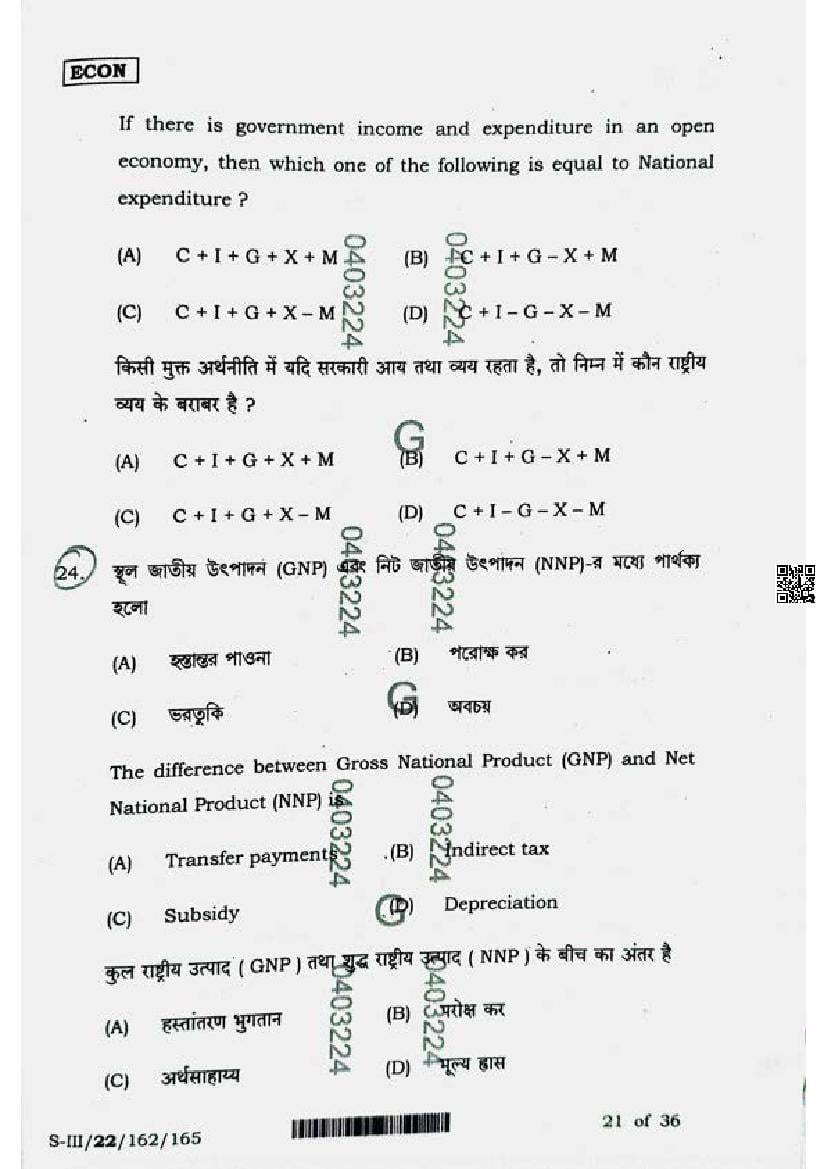 ECON
If there is government income and expenditure in an open
economy, then which one of the following is equal to National
expenditure ?
(A) C + I + G + X + M (B) C + I + G – X + M
(C) C + I + G + X – M (D) C + I – G – X – M
0403224 0403224
किसी मुक्त अर्थनीति में यदि सरकारी आय तथा व्यय रहता है, तो निम्न में कौन राष्ट्रीय
व्यय के बराबर है ?
G
(A) C + I + G + X + M (B) C + I + G – X + M
(C) C + I + G + X – M (D) C + I – G – X – M
0403224 0403224
24. স্থূল জাতীয় উৎপাদন (GNP) এবং নিট জাতীয় উৎপাদন (NNP)-র মধ্যে পার্থক্য
হলো
(A) হস্তান্তর পাওনা (B) পরোক্ষ কর
G
(C) ভরতুকি (D) অবচয়
The difference between Gross National Product (GNP) and Net
National Product (NNP) is
0403224 0403224
(A) Transfer payments (B) Indirect tax
G
(C) Subsidy (D) Depreciation
कुल राष्ट्रीय उत्पाद ( GNP ) तथा शुद्ध राष्ट्रीय उत्पाद ( NNP ) के बीच का अंतर है
0403224 0403224
(A) हस्तांतरण भुगतान (B) परोक्ष कर
(C) अर्थसाहाय्य (D) मूल्य ह्रास
S-III/22/162/165
21 of 36